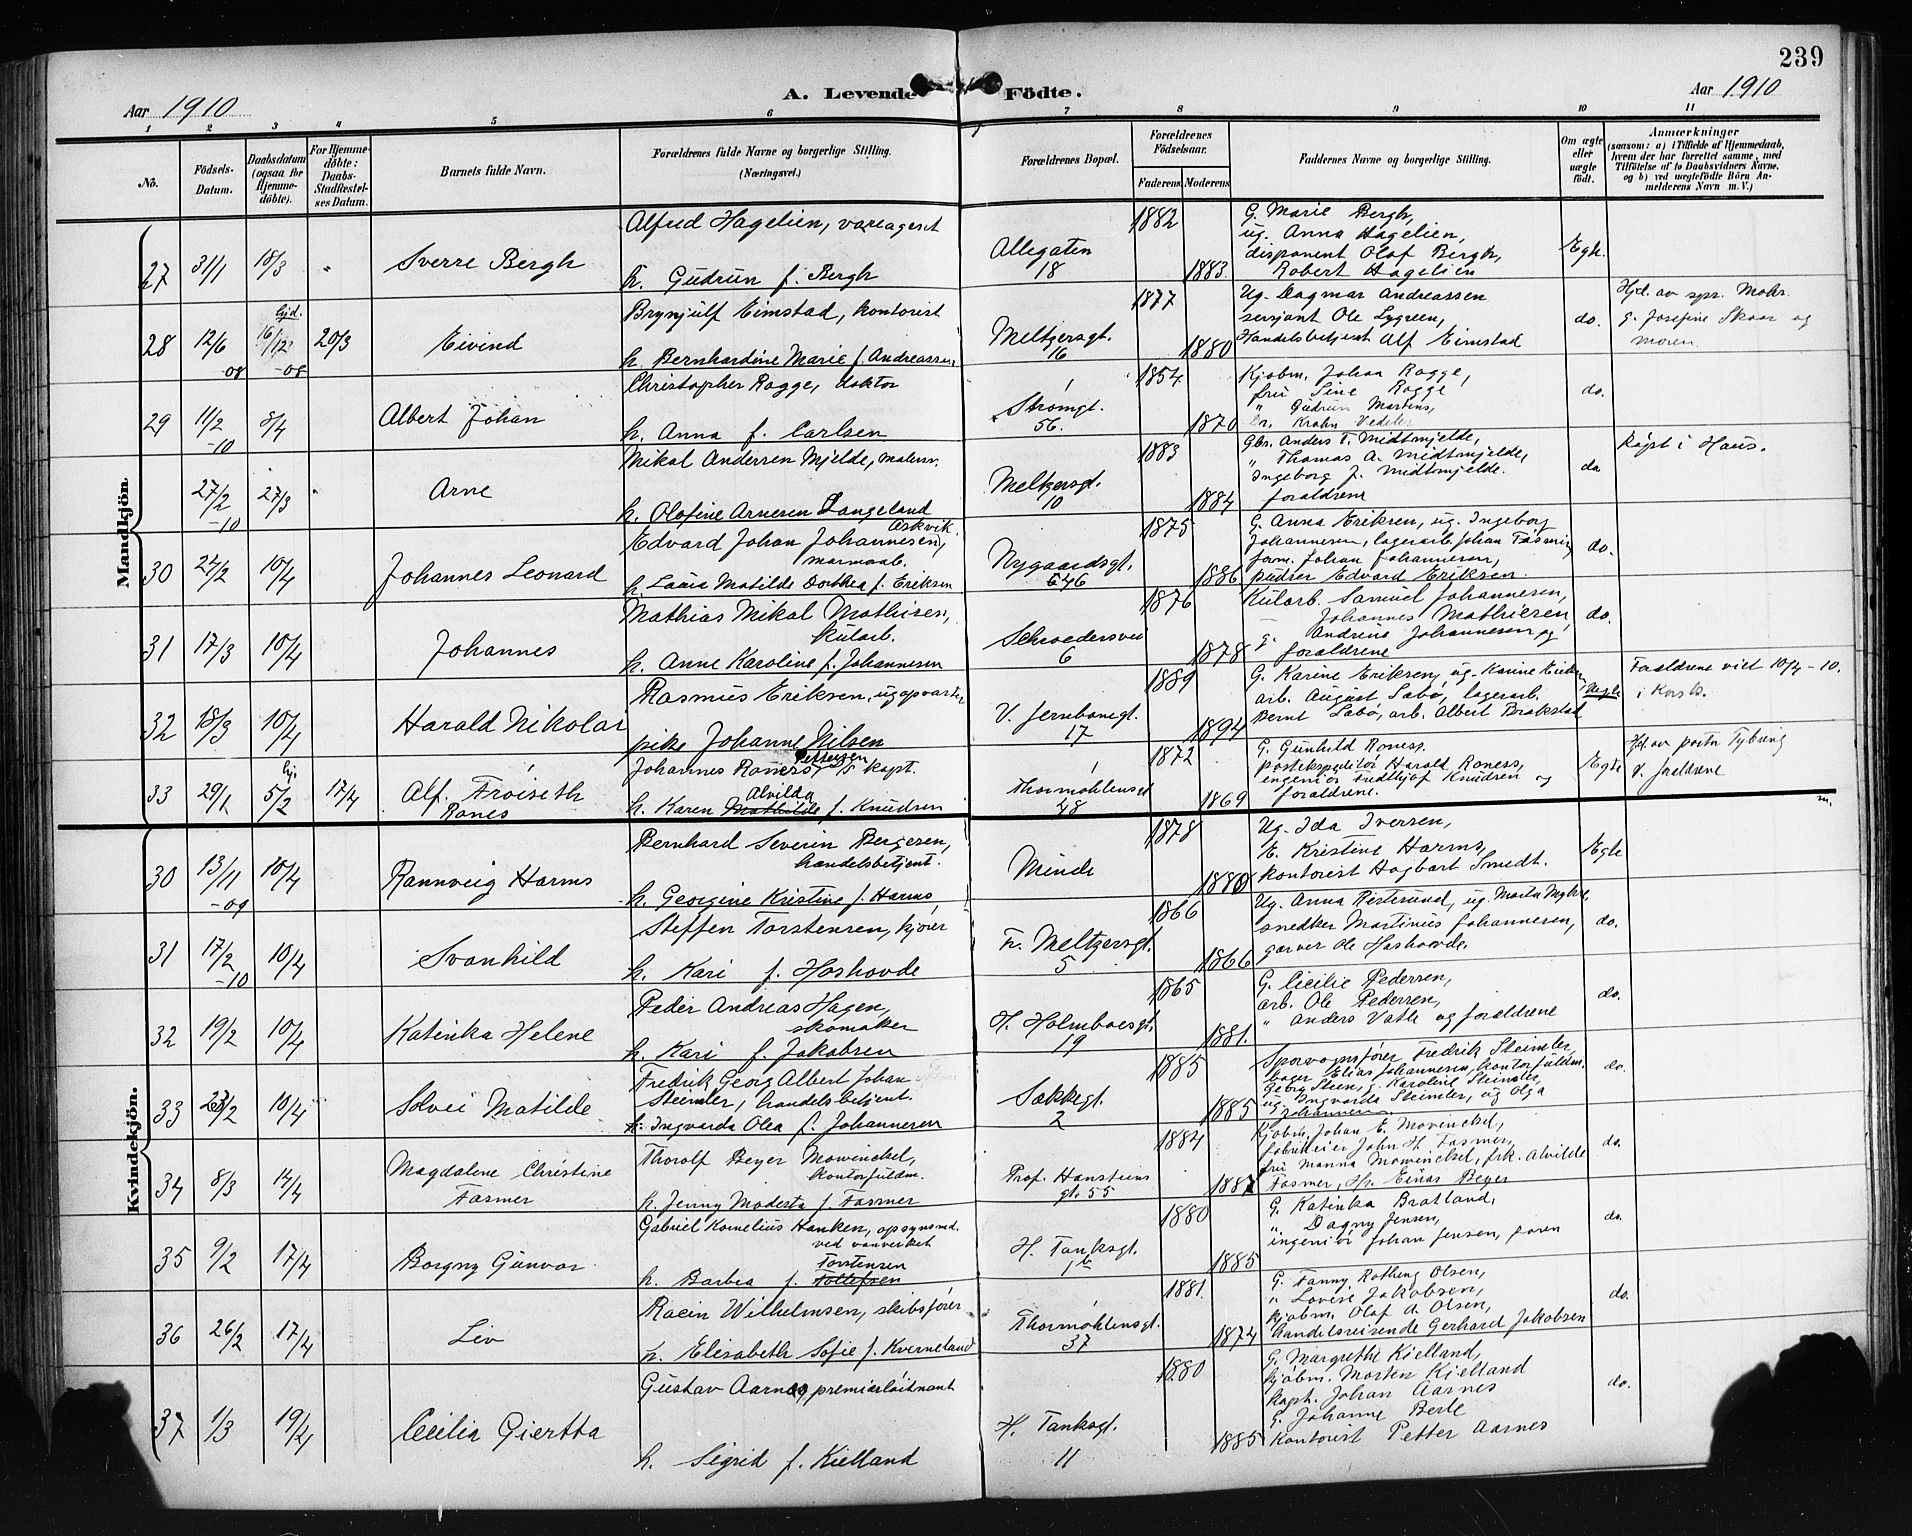 239
Aar 1910
A. Levende Födte.
Aar 1910
1 2 3 4 5 6 7 8 9 10 11
No.
Födsels-Datum.
Daabsdatum (ogsaa for Hjemme-döbte).
For Hjemme-döbte: Daabs-Stadfæstel-ses Datum.
Barnets fulde Navn.
Forældrenes fulde Navne og borgerlige Stilling.
(Næringsvei.)
Forældrenes Bopæl.
Forældrenes Födselsaar.
Faderens Moderens
Faddernes Navne og borgerlige Stilling.
Om ægte eller uægte födt.
Anmærkninger
(saasom: a) i Tilfælde af Hjemmedaab, hvem der har forrettet samme, med Tilföielse af to Daabsvidners Navne. og b) ved uægtefödte Börn An-melderens Navn m. V.)
Mandkjön.
27 31/1 18/3 " Sverre Bergh
Alfred Hagelien, vareagent
h. Gudrun f. Bergh
Allegaten 18
1882 1883
G. Marie Bergh,
ug. Anna Hagelien,
disponent Olaf Bergh,
Robert Hagelien
Egte.
28 12/6 -08 hjd. 16/12 -08 20/3 Eivind
Brynjulf Eimstad, kontorist
h. Bernhardine Marie f. Andreassen
Meltzersgt. 16
1877 1880
Ug. Dagmar Andreassen
serjant Ole Lygreen,
Handelsbetjent Alf Eimstad
do.
Hjd. av spr. Mohr.
G. Josefine Skaar og
moren.
29 11/2 -10 8/4 Albert Johan
Christopher Rogge, doktor
h. Anna f. Carlsen
Strømgt. 56.
1854 1870
Kjøbm. Johan Rogge,
fru Sine Rogge
" Gudrun Martens,
Dr. Krohn
do.
27/2 -10 27/3 " Arne
Mikal Andersen Mjelde, malersv.
h. Olofine Arnesen Langeland
Meltzersgt. 10
1883 1884
Gbr. Anders T. Midtmjelde,
" Thomas A. Midtmjelde,
Ingeborg J. Midtmjelde.
forældrene
do
Døpt i Haus.
30 24/2 10/4 Johannes Leonard
Edvard Johan Johannesen Askvik,
murmaab.
h. Laura Matilde Dorthea f. Eriksen
Nygaardsgt. 646
1875 1886
G. Anna Eriksen, ug. Ingeborg
Johannesen, lagerarb. Johan Fasmer,
form. Johan Johannesen,
pudser Edvard Eriksen.
do.
31 17/3 10/4 Johannes
Mathias Mikal Mathisen,
kularb.
h. Anne Karoline f. Johannesen
Schroedersvei 6
1876 1878
Kularb. Samuel Johannesen,
" Johannes Mathiesen,
G. Andrine Johannesen og
forældrene
do.
32 18/3 10/4 Harald Nikolai
Rasmus Eriksen, ug opvarter
pike Johanne Nilsen
V. Jernbanegt. 17
1889 1894
G. Karine Eriksen, ug. Karine Eriksen
arb. August Sabø, lagerarb.
Bernt Sabø, arb. Albert Brakstad
Uegte
Forældrene viet 10/4-10.
i Korsk.
33 29/1 hj. 5/2 17/4 Alf Frøiseth
Rones
Johannes Pettersen Roness, D/S kapt.
h. Karen Mathilde Alvilda f. Knudsen
Thormøhlensgt 48
1872 1869
G. Gunhild Roness.
postekspeditør Harald Roness,
ingeniør Fredthjof Knudsen og
forældrene.
Egte
Hjd. av pastor Tybring
V. forældrene
Kvindekjön.
30 13/11 -09 10/4 Rannveig Harms
Bernhard Severin Bergesen,
handelsbetjent.
h. Georgine Kristine f. Harms,
Minde
1878 1880
Ug. Ida Iversen,
E. Kristine Harms,
kontorist Hagbart Smedt.
Egte
31 17/2 -10 10/4 Svanhild
Steffen Torstensen, kjører
h. Kari f. Hoshovde
Fr. Meltzersgt. 5
1866 1866
Ug. Anna Ristesund, ug. Marta
snedker Martinius Johannesen,
garver Ole Hoshovde.
do.
32 19/2 10/4 Katinka Helene
Peder Andreas Hagen,
skomaker
h. Kari f. Jakobsen
H. Holmboesgt. 19
1865 1881.
G. Cecilie Pedersen,
arb. Ole Pedersen,
" Anders Vatle og forældrene
do.
33 23/2 10/4 Solvei Matilde
Fredrik Georg Albert Johan
Steimler, handelsbetjent.
h. Ingvarda Olea f. Johannesen
Sækkegt. 2
1885 1885
Sporvognsfører Fredrik Steimler,
bager Elias Johannesen, kontorfuldm.
Georg Steen, g. Karoline Steimler,
ug. Ingvarda Steimler, ug Olga
Johannesen
do.
34 8/3 14/4 Magdalene Christine
Fasmer
Thorolf Beyer Mowinckel,
kontorfuldm.
h. Jenny Modesta f. Fasmer
Prof. Hansteens gt. 55
1884 1887
Kjøbm. Johan E. Mowinckel,
fabrikeier John H. Fasmer,
fru Manna Mowinckel, frk. Alvilde
Fasmer, Hr. Einar Beyer
do.
35 9/2 17/4 Borgny Gunvor
Gabriel Kornelius Hanken, opsynsmd.
ved vanverket
h. Barbra f. Torstensen Tollefsen
H. Tanksgt. 1b
1880 1885
G. Katinka Bratland,
" Dagny Jensen,
ingeniør Johan Jensen, faren
do.
36 26/2 17/4 Liv
Rasin Wilhelmsen, skibsfører
h. Elisabeth Sofie f. Kverneland
Thormøhlensgt. 37
1881. 1874
G. Fanny Rotheng Olsen,
" Lovise Jakobsen,
kjøbm. Olaf A. Olsen,
handelsreisende Gerhard Jakobsen
do.
37 1/3 19/4 Cecilia Giertta
Gustav Aarnes, premierløitnant
h. Sigrid f. Kielland
H. Tanksgt. 11
1880 1885
G. Margrethe Kielland,
kjøbm. Morten Kielland
kapt. Johan Aarnes
G. Johanne Berle
kontorist Petter Aarnes
do.